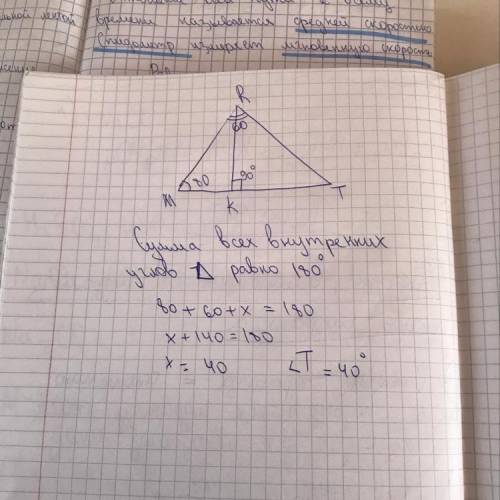 времени называется средней скоростью
Спидометр измеряет мгновенную скорость
R
60
80
90°
M
K
T
Сумма всех внутренних
углов △ равно 180°
80 + 60 + x = 180
x + 140 = 180
x = 40 ∠T = 40°